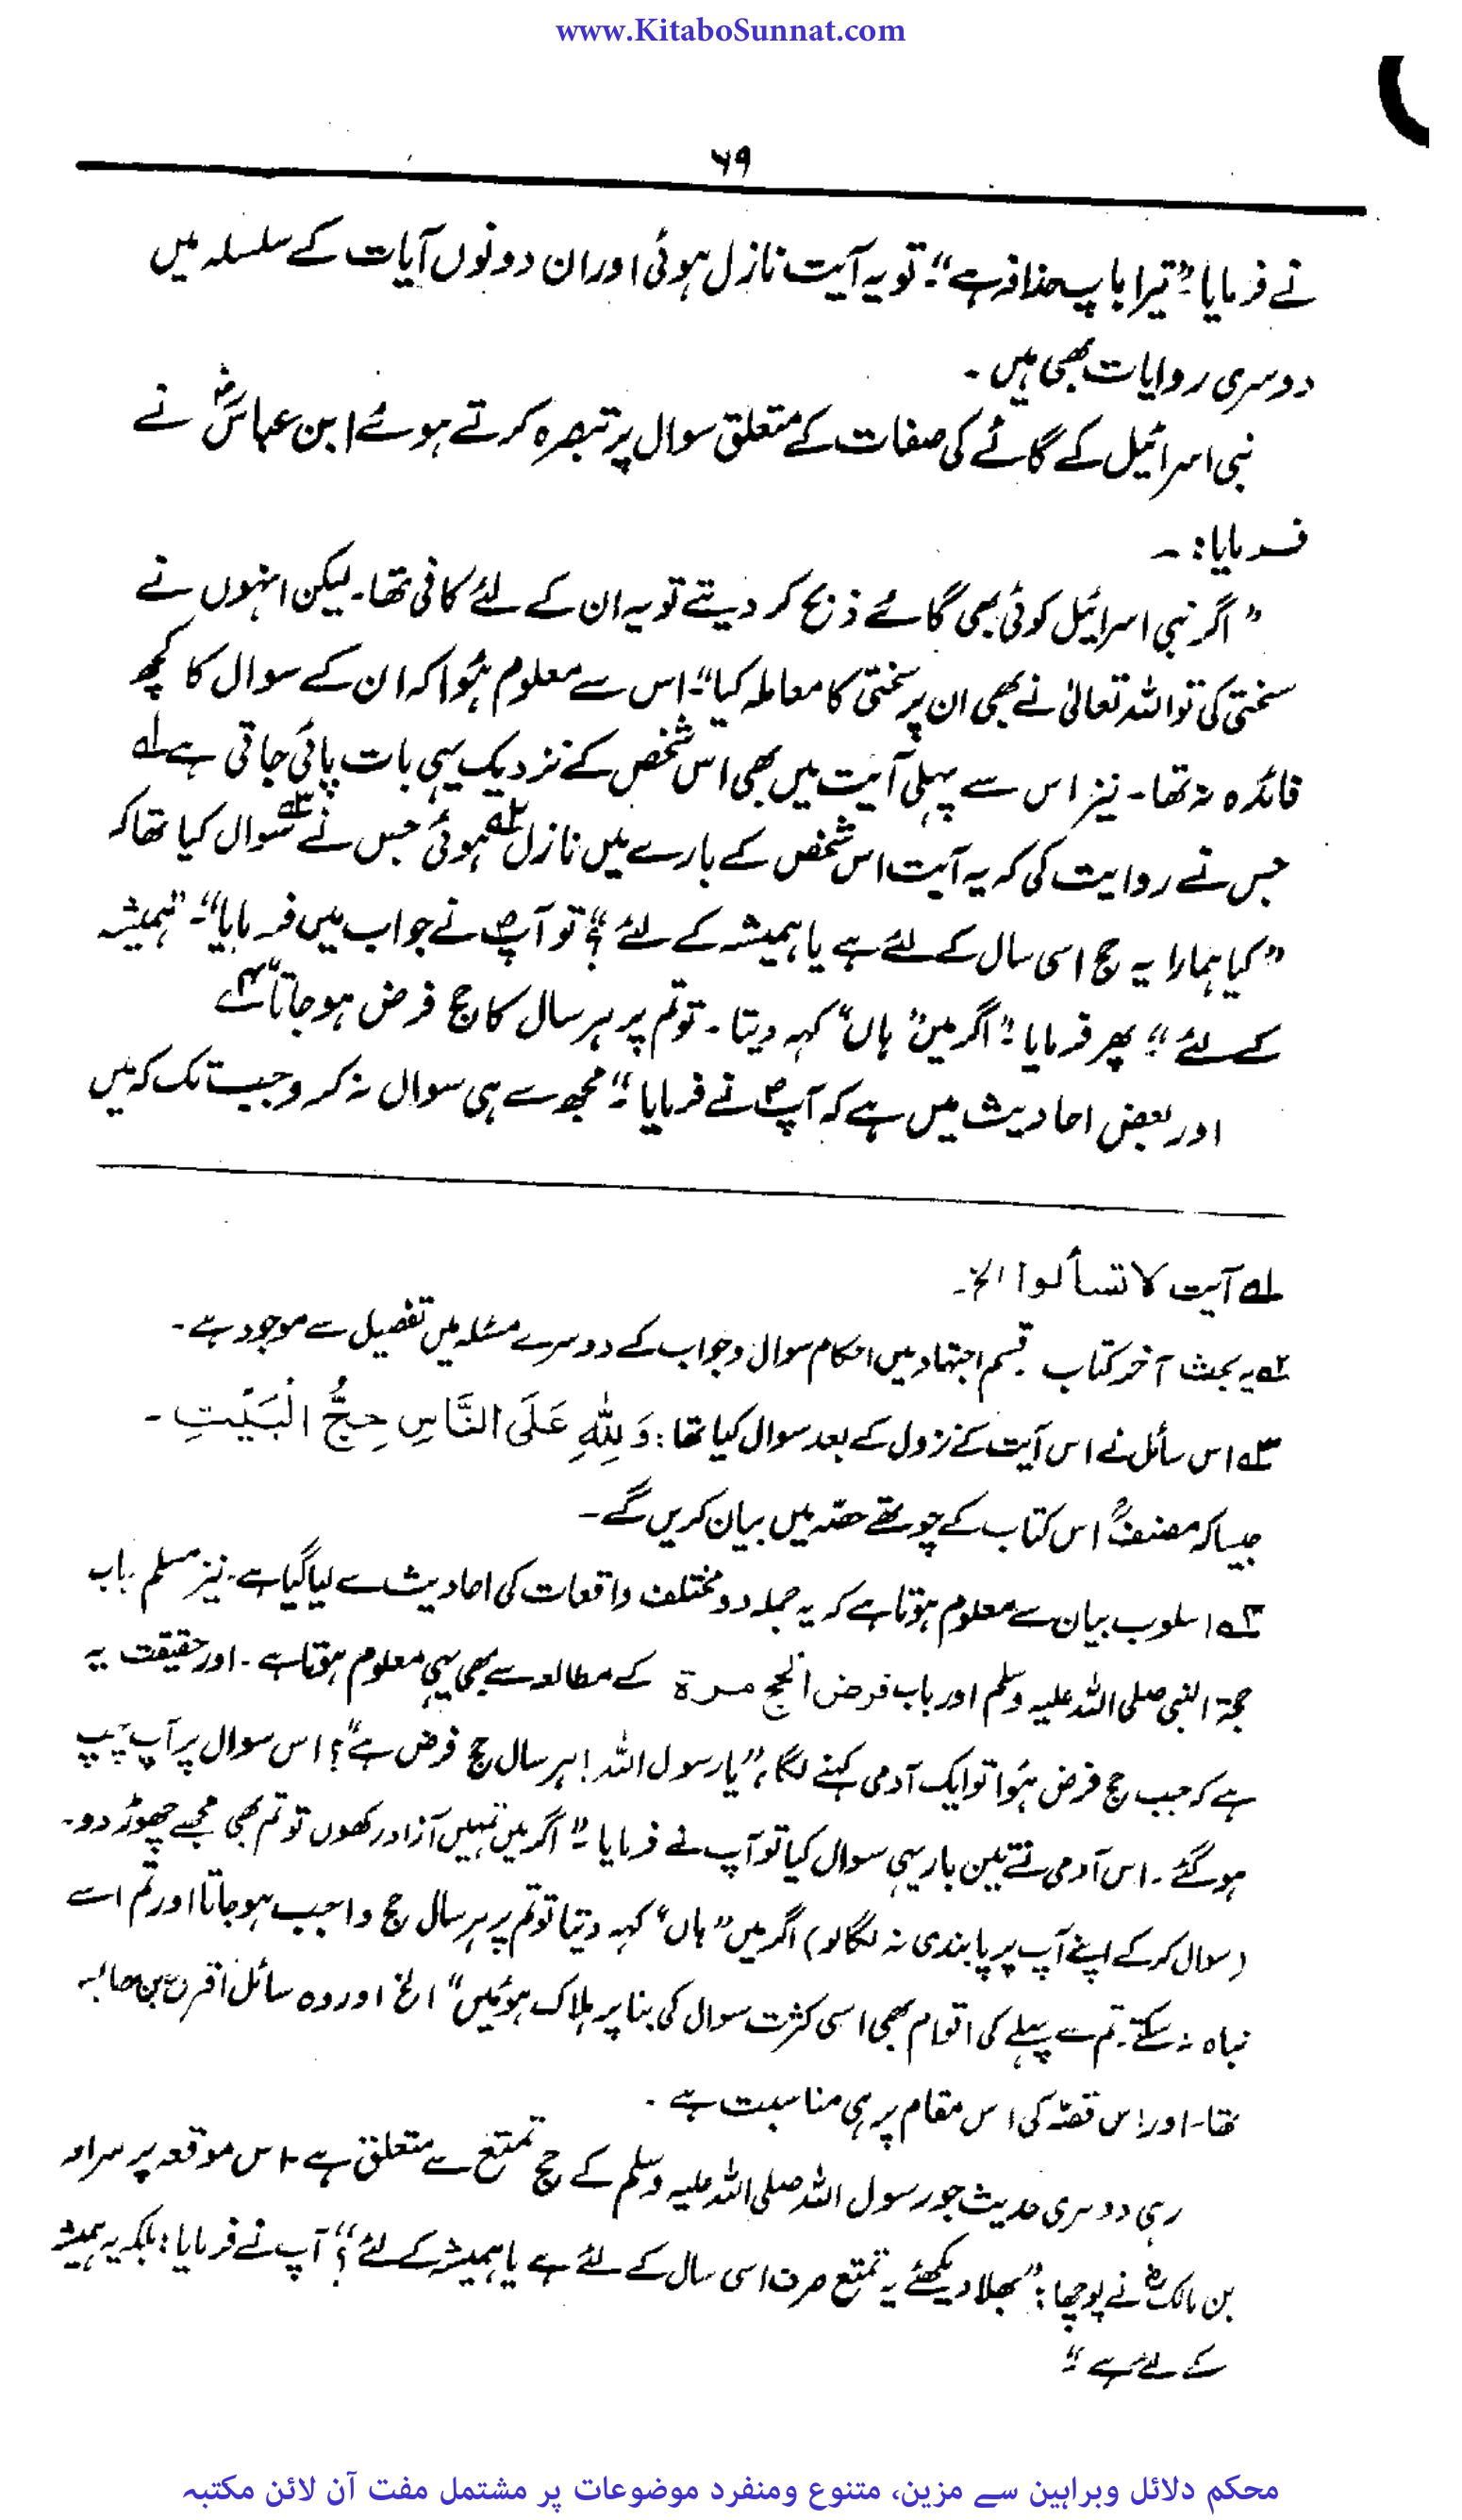 www.KitaboSunnat.com
۶۹
نے فرمایا:”تیرا باپ حذافہ ہے“۔ تو یہ آیت نازل ہوئی اور ان دونوں آیات کے سلسلہ میں
دوسری روایات بھی ہیں۔
بنی اسرائیل کے گائے کی صفات کے متعلق سوال پر تبصرہ کرتے ہوئے ابن عباسؓ نے
فرمایا:۔
”اگر بنی اسرائیل کوئی بھی گائے ذبح کر دیتے تو یہ ان کے لئے کافی تھا۔ لیکن انہوں نے
سختی کی تو اللہ تعالیٰ نے بھی ان پر سختی کا معاملہ کیا“۔ اس سے معلوم ہُوا کہ ان کے سوال کا کچھ
فائدہ نہ تھا۔ نیز اس سے پہلی آیت میں بھی اس شخص کے نزدیک یہی بات پائی جاتی ہے۱ے
جس نے روایت کی کہ یہ آیت اس شخص کے بارے میں نازل۲ے ہوئی جس نے۳ے سوال کیا تھا کہ
”کیا ہمارا یہ حج اسی سال کے لئے ہے یا ہمیشہ کے لئے؟“ تو آپؐ نے جواب میں فرمایا“۔ ”ہمیشہ
کے لئے“ پھر فرمایا:”اگر میں ”ہاں“ کہہ دیتا۔ تو تم پر ہر سال کا حج فرض ہو جاتا“۴ے
اور بعض احادیث میں ہے کہ آپؐ نے فرمایا:“مجھ سے ہی سوال نہ کرو جب تک کہ میں
۱ے آیت لا تسألوا الخ۔
۲ے یہ بحث آخر کتاب قسم اجتہاد میں احکام سوال وجواب کے دوسرے مسئلہ میں تفصیل سے موجود ہے۔
۳ے اس سائل نے اس آیت کے نزول کے بعد سوال کیا تھا: وَ لِلّٰہِ عَلَی النَّاسِ حِجُّ الْبَیْتِ ۔
جیسا کہ مصنفؒ اس کتاب کے چوتھے حصہ میں بیان کریں گے۔
۴ے اسلوب بیان سے معلوم ہوتا ہے کہ یہ جملہ دو مختلف واقعات کی احادیث سے لیا گیا ہے۔ نیز مسلم باب
حجۃ النبی صلی اللہ علیہ وسلم اور باب فرض الحج مرۃ کے مطالعہ سے بھی یہی معلوم ہوتا ہے۔ اور حقیقت یہ
ہے کہ جب حج فرض ہُوا تو ایک آدمی کہنے لگا،”یا رسول اللہ! ہر سال حج فرض ہے“؟ اس سوال پر آپ چپ
ہو گئے۔ اس آدمی نے تین بار یہی سوال کیا تو آپ نے فرمایا:”اگر میں تمہیں آزاد رکھوں تو تم بھی مجھے چھوڑ دو۔
(سوال کر کے اپنے آپ پر پابندی نہ لگا لو) اگر میں ”ہاں“ کہہ دیتا تو تم پر ہر سال حج واجب ہو جاتا اور تم اسے
نباہ نہ سکتے۔ تم سے پہلے کی اقوام بھی اسی کثرت سوال کی بنا پر ہلاک ہوئیں“ الخ اور وہ سائل اقرع بن حابس
تھا۔ اور اس قصّہ کی اس مقام پر ہی مناسبت ہے۔
رہی دوسری حدیث جو رسول اللہ صلی اللہ علیہ وسلم کے حج تمتع سے متعلق ہے اس موقعہ پر سراقہ
بن مالکؓ نے پوچھا:”بھلا دیکھئے یہ تمتع صرف اسی سال کے لئے ہے یا ہمیشہ کے لئے؟“ آپ نے فرمایا: بلکہ یہ ہمیشہ
کے لئے ہے“
محکم دلائل وبراہین سے مزین، متنوع ومنفرد موضوعات پر مشتمل مفت آن لائن مکتبہ